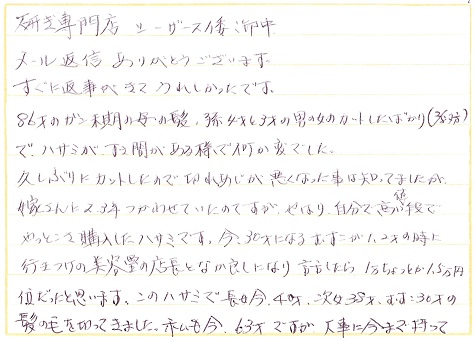 研ぎ専門店 シーザース様 御中
メール返信 ありがとうございます。
すぐに返事がきて うれしかったです。
86才のがん末期の母の髪、孫4才と3才の男の女のカットしたばかり(36分)
で、ハサミが、 間がある様で何か変でした。
久しぶりにカットしたので切れあじが 悪くなった事は知ってましたが、
嫁さんに2.3年つかわせていたのですが、やはり、自分で高い値段で
やっとこさ購入したハサミです。今、30才になるむすこが1.2才の時に
行きつけの美容室の店長となか良しになり 言したら1万ちょっとか1.5万円
位だったと思います。このハサミで長女今、40才、次女38才、むすこ30才の
髪の毛を切ってきました。私も今、63才ですが 大事に今まで持って